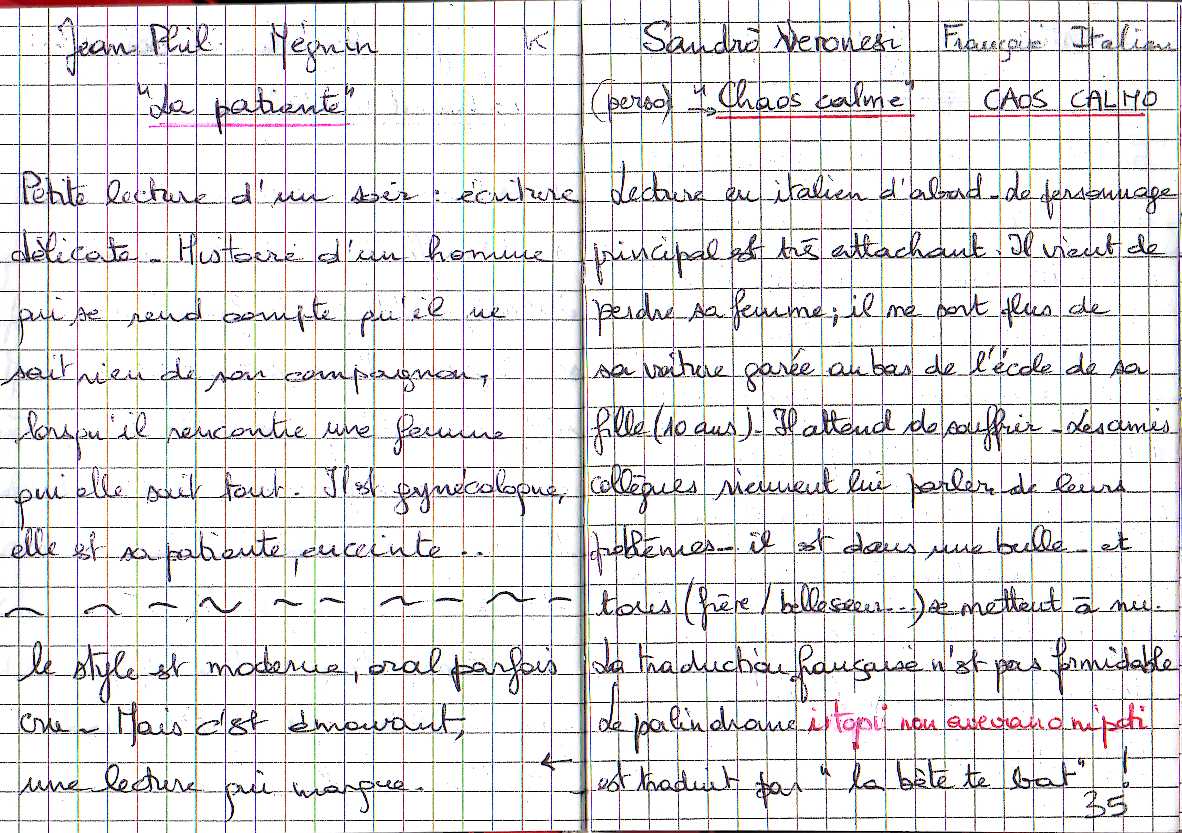 Jean Phil. Mégnin K
"La patiente"
Petite lecture d'un soir : écriture
délicate - Histoire d'un homme
qui se rend compte qu'il ne
sait rien de son compagnon,
lorsqu'il rencontre une femme
qui elle sait tout. Il est gynécologue,
elle est sa patiente, enceinte ..
le style est moderne, oral parfois
cru - Mais c'est émouvant,
une lecture qui marque.
Sandro Veronesi Français Italien
(perso) "Chaos calme" CAOS CALMO
Lecture en italien d'abord - Le personnage
principal est très attachant. Il vient de
perdre sa femme ; il ne sort plus de
sa voiture garée au bas de l'école de sa
fille (10 ans) - Il attend de souffrir - Les amis
collègues viennent lui parler de leurs
problèmes - il est dans une bulle - et
tous (frère / belle soeur ...) se mettent à nu.
La traduction française n'est pas formidable
le palindrome i topi non avevano nipoti
← est traduit par "la bête te bat" !
35